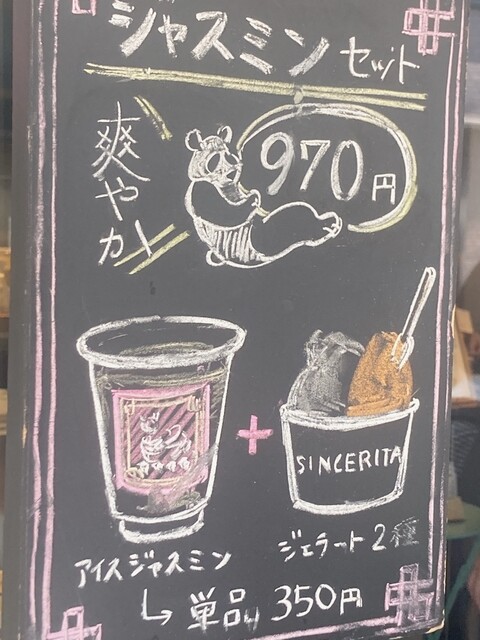 ジャスミン セット
爽やか
970円
+
SINCERITA
アイスジャスミン
ジェラート2種
↳ 単品 350円